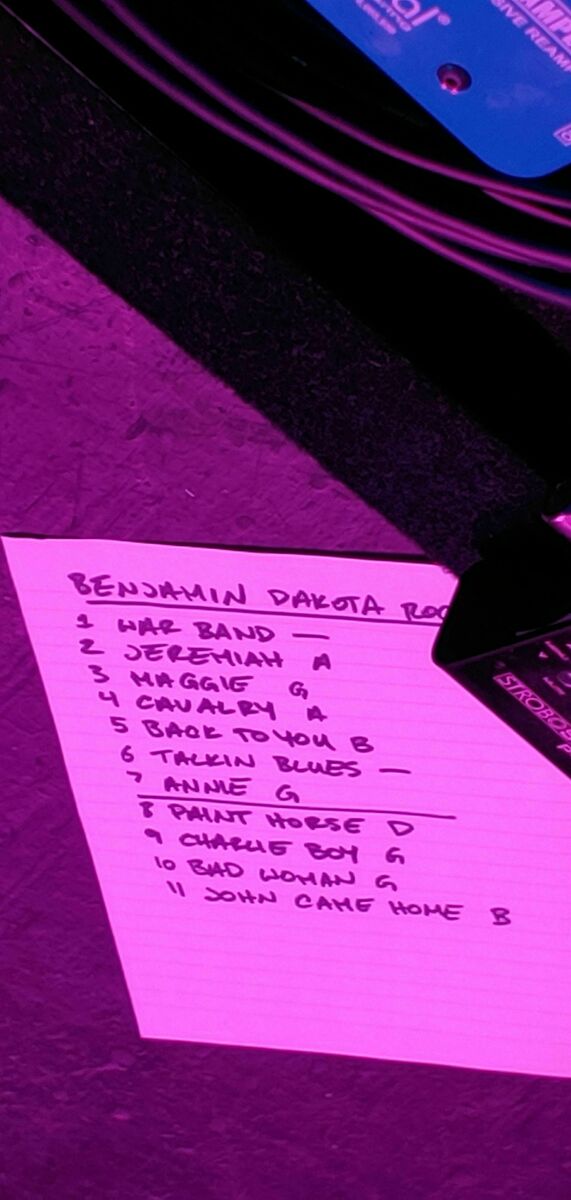 SIVE REAM
BENJAMIN DAKOTA ROG
1 WAR BAND —
2 JEREMIAH A
3 MAGGIE G
4 CAVALRY A
5 BACK TO YOU B
6 TALKIN BLUES —
7 ANNIE G
8 PAINT HORSE D
9 CHARLIE BOY G
10 BAD WOMAN G
11 JOHN CAME HOME B
STROBOS